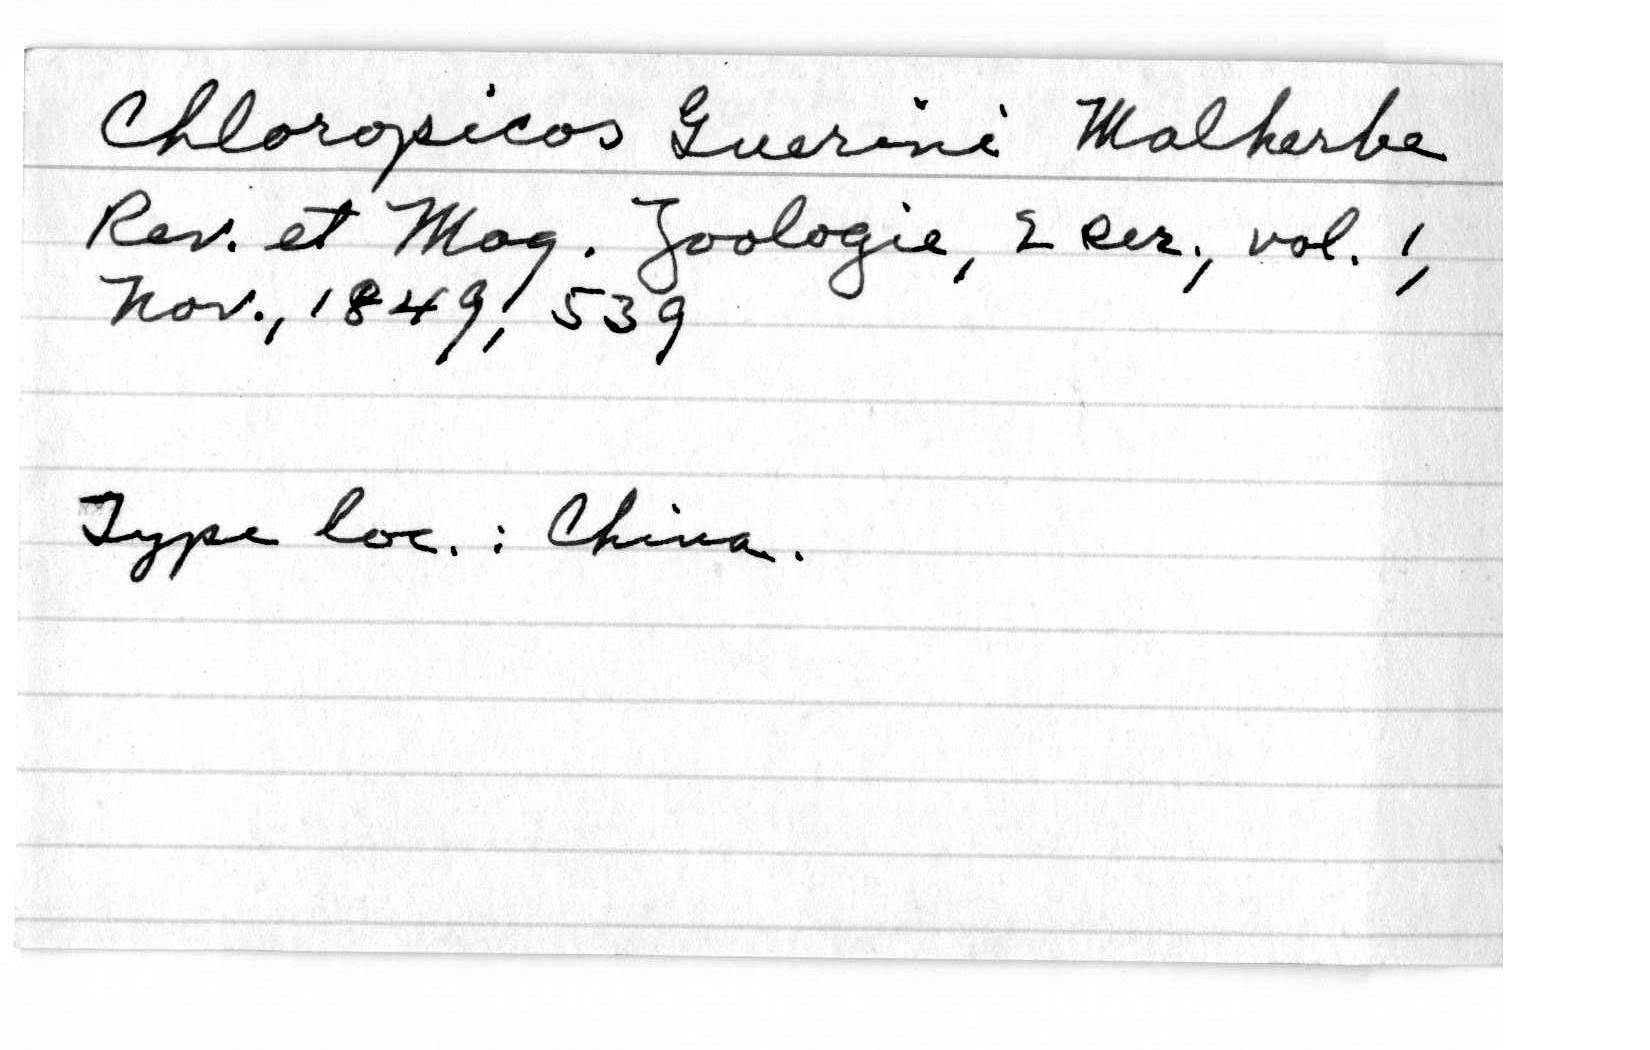 Chloropicos Guerini Malherbe
Rev. et Mag. Zoologie, 2 ser., vol. 1,
Nov., 1849, 539
Type loc. : China.